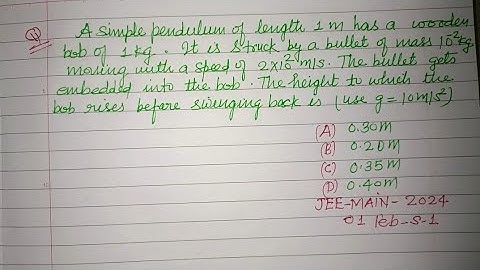 Q A simple pendulum of length 1 m has a wooden
bob of 1 kg. It is struck by a bullet of mass 10⁻² kg
moving with a speed of 2×10² m/s. The bullet gets
embedded into the bob. The height to which the
bob rises before swinging back is (use g = 10 m/s²)
(A) 0.30 m
(B) 0.20 m
(C) 0.35 m
(D) 0.40 m
JEE-MAIN-2024
01 Feb-S-1